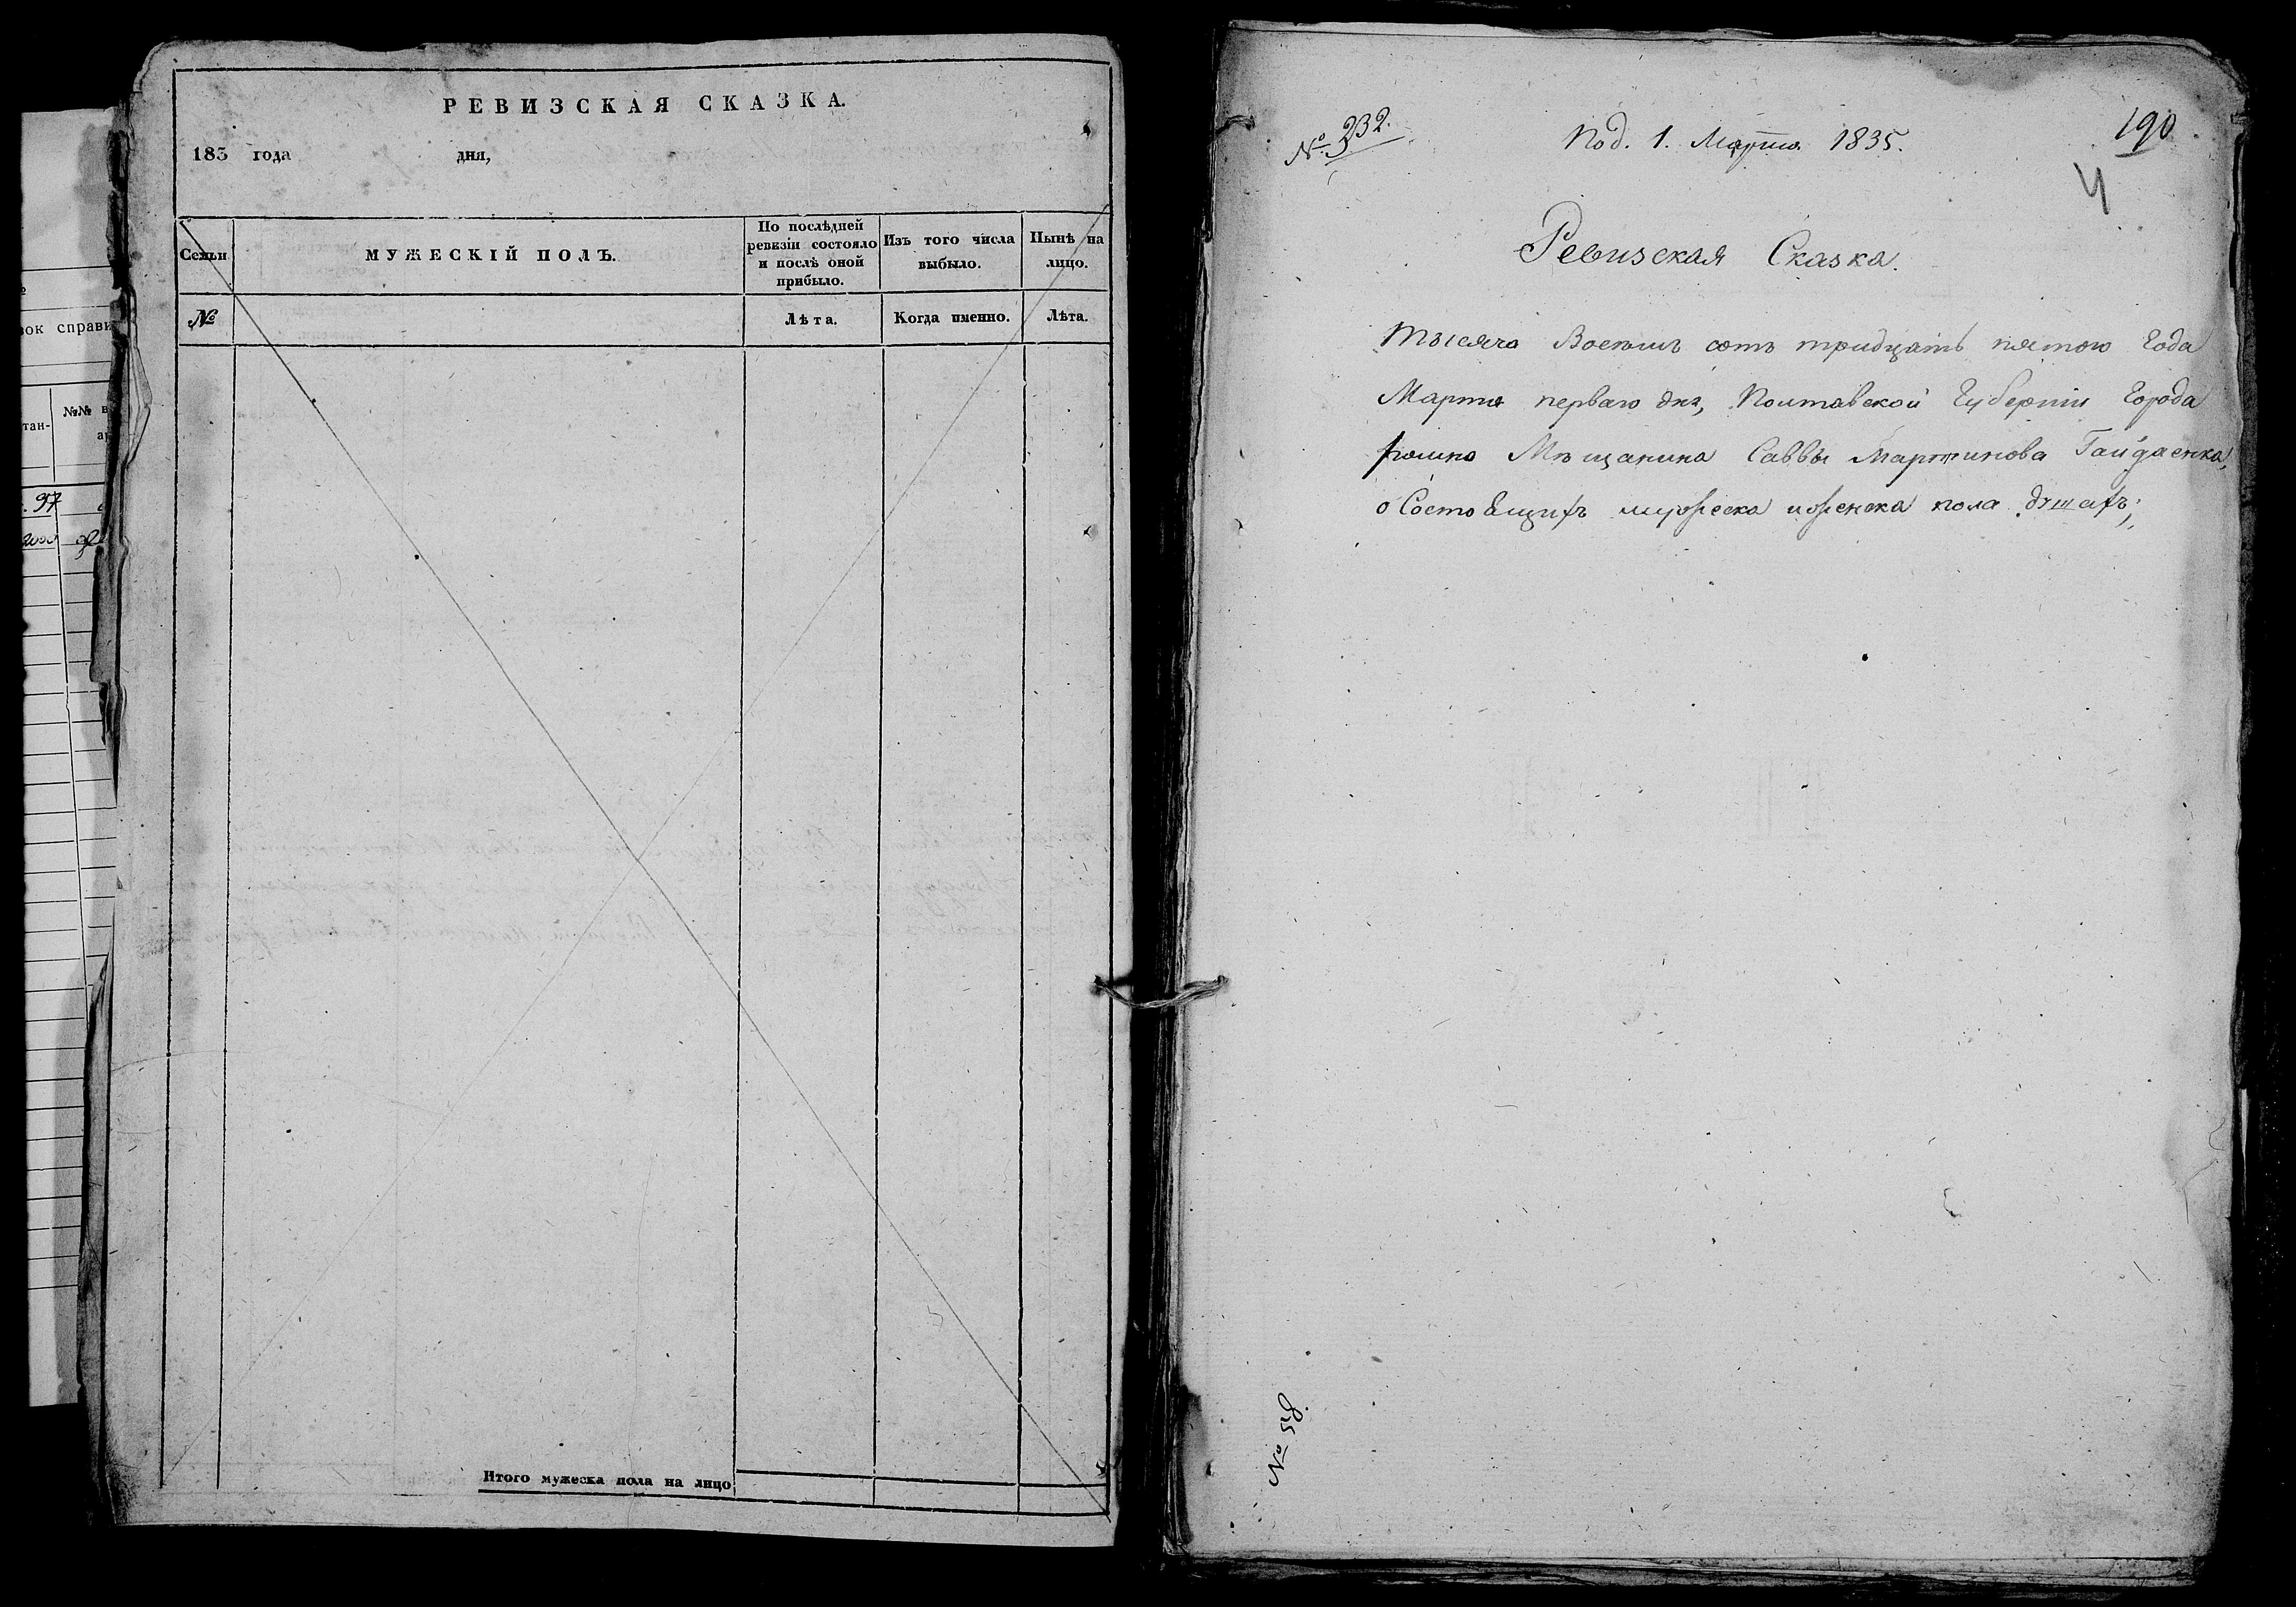 РЕВИЗСКАЯ СКАЗКА.
183 года дня,
Семьи
МУЖЕСКІЙ ПОЛЪ.
По послѣдней
ревизіи состояло
и послѣ оной
прибыло.
Изъ того числа
выбыло.
Нынѣ на
лицо.
№
Лѣта.
Когда именно.
Лѣта.
Итого мужеска пола на лицо
№ 232.
Под. 1. Марта 1835.
190
4
Ревизская Сказка.
Тысяча Восемъ сотъ тридцать пятого Года
Марта перваго дня, Полтавской Губерніи Города
Мѣщанина Саввы Мартинова Гайдаенка,
о Состоящихъ мужеска и женска пола душахъ;
№ 58.
№№
97